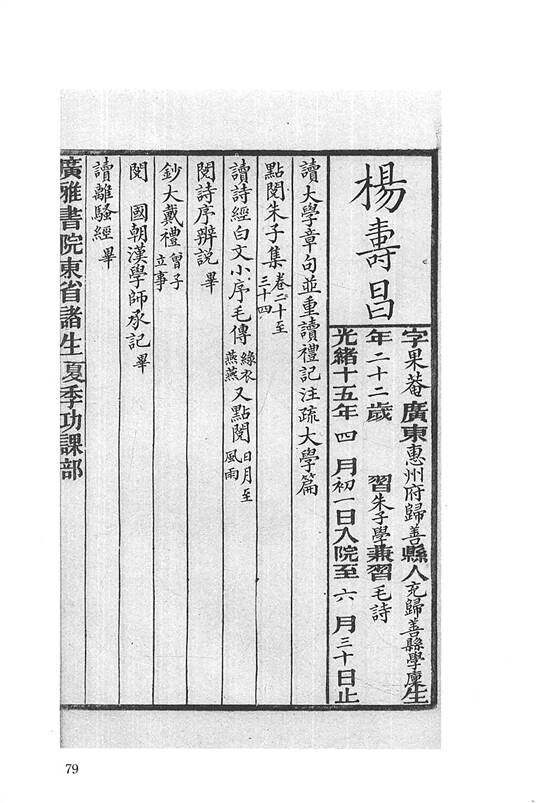 楊壽昌
字果菴廣東惠州府歸善縣人充歸善縣學廩生
年二十二歲 習朱子學兼習毛詩
光緒十五年四月初一日入院至六月三十日止
讀大學章句並重讀禮記注疏大學篇
點閱朱子集卷二十至三十四
讀詩經白文小序毛傳綠衣燕燕又點閱日月至風雨
閱詩序辨說畢
鈔大戴禮曾子立事
閱 國朝漢學師承記畢
讀離騷經畢
廣雅書院東省諸生夏季功課部
79